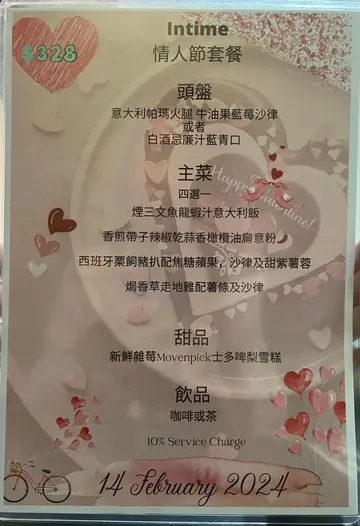 $328
Intime
情人節套餐
頭盤
意大利帕瑪火腿 牛油果藍莓沙律
或者
白酒忌廉汁藍青口
主菜
四選一
煙三文魚龍蝦汁意大利飯
香煎帶子辣椒乾蒜香橄欖油扁意粉
西班牙栗飼豬扒配焦糖蘋果，沙律及甜紫薯蓉
焗香草走地雞配薯條及沙律
甜品
新鮮雜莓Movenpick士多啤梨雪糕
飲品
咖啡或茶
10% Service Charge
14 February 2024
Happy Valentine!